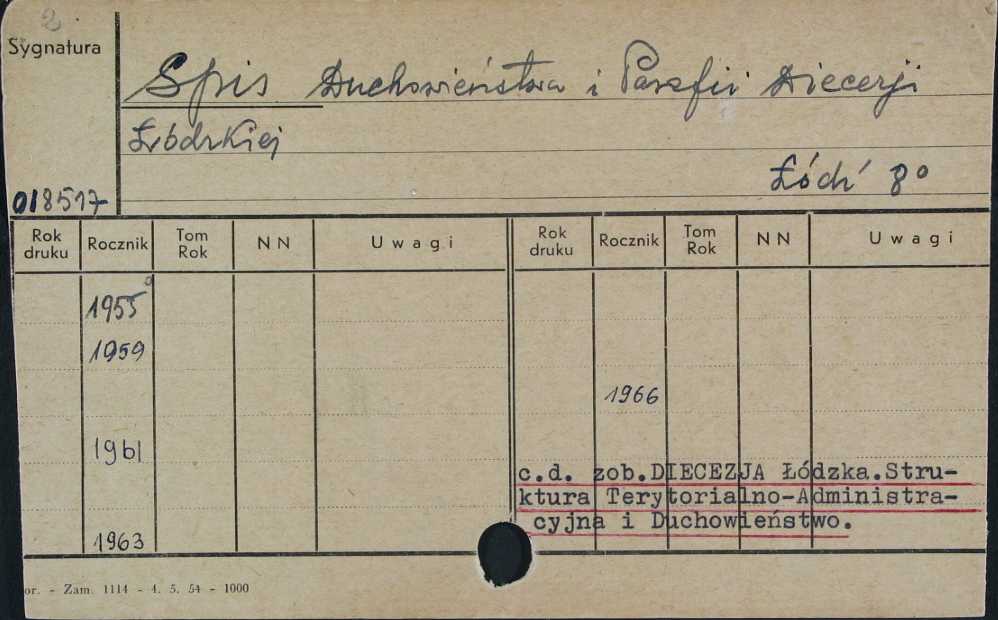 2
Sygnatura
Spis Duchowieństwa i Parafii Diecezji
Łódzkiej
Łódź 8°
018517
Rok druku Rocznik Tom Rok NN Uwagi Rok druku Rocznik Tom Rok NN Uwagi
1955
1959
1961
1963
1966
c.d. zob.DIECEZJA Łódzka.Stru-
ktura Terytorialno-Administra-
cyjna i Duchowieństwo.
or. - Zam. 1114 - 4. 5. 54 - 1000